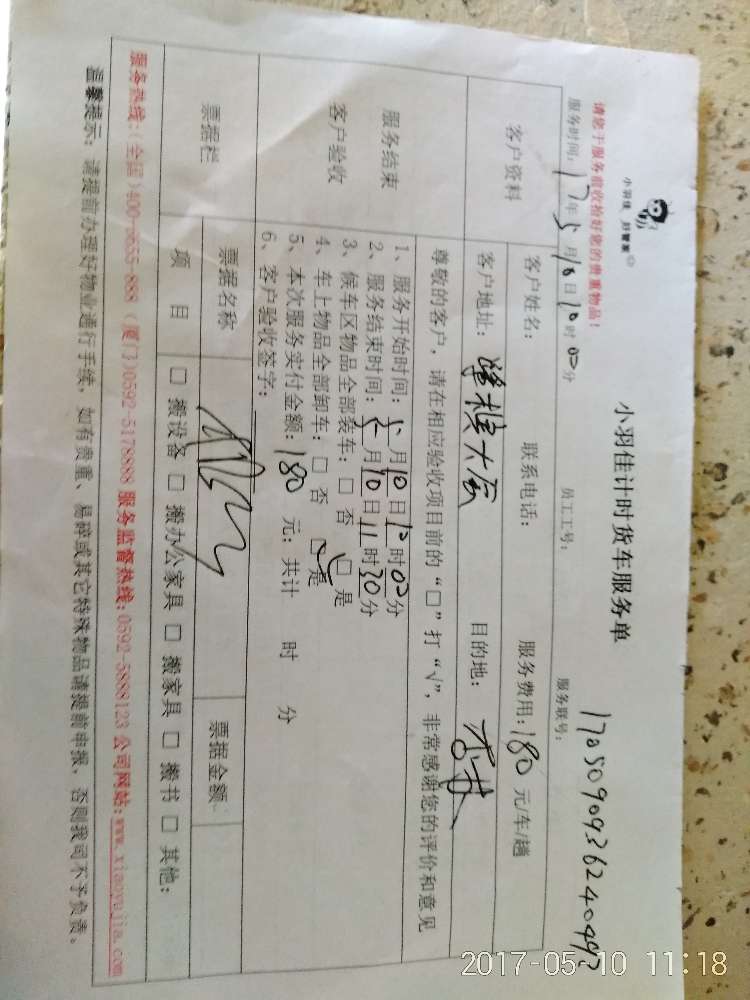 小羽佳 好管家
小羽佳计时货车服务单
170509093624049
请您于服务前收拾好您的贵重物品！
服务时间：17年5月10日10时00分 员工工号： 服务联号：
客户资料
客户姓名： 联系电话： 服务费用：180元/车/趟
客户地址：大厦 目的地：杏林
服务结束
客户验收
尊敬的客户，请在相应验收项目前的“□”打“√”，非常感谢您的评价和意见
1、服务开始时间：5月10日10时00分
2、服务结束时间：5月10日11时30分
3、候车区物品全部装车：□否 □是
4、车上物品全部卸车：□否 □是
5、本次服务实付金额：180元；共计 时 分
6、客户验收签字：
票据栏
票据名称 票据金额
项目 □搬设备 □搬办公家具 □搬家具 □搬书 □其他：
服务热线：(全国)400-6655-888 (厦门)0592-5178888 服务监督热线:0592-5888123 公司网站:www.xiaoyujia.com
温馨提示：请提前办理好物业通行手续，如有贵重、易碎或其它特殊物品请提前申报，否则我司不予负责。
2017-05-10 11:18